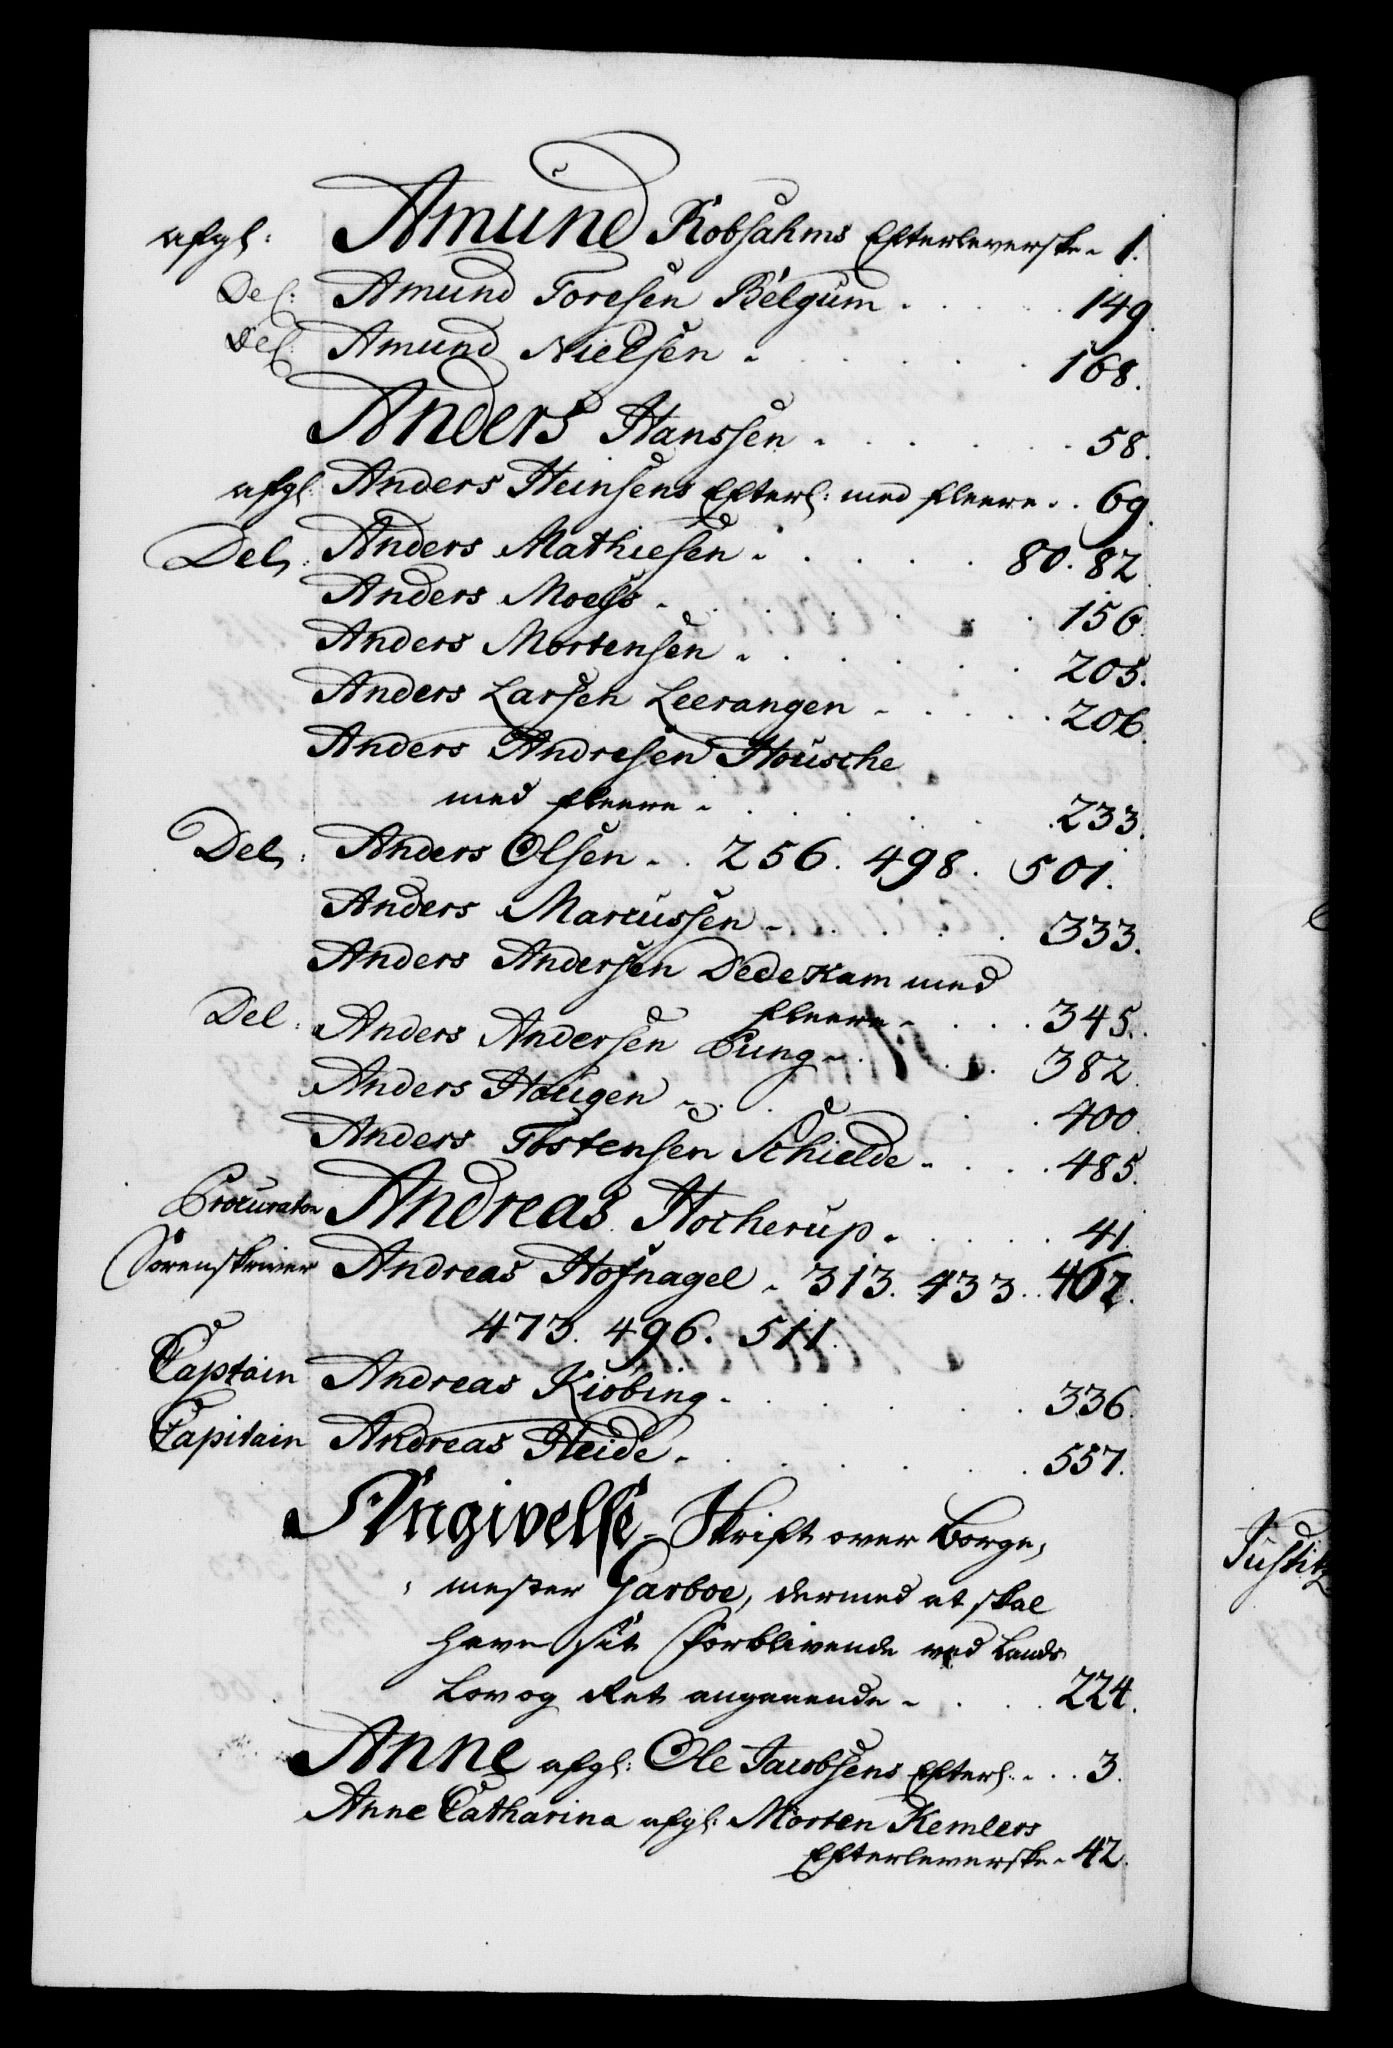 afgl: Amund Kobsahms Efterleverske - 1.
Del: Amund Toresen Belgum . . . 149.
Del: Amund Nielsen - . . . 168.
Anders Hanssen - . . . 58.
afgl: Anders Heinsens Efterl: med fleere . . 69.
Del: Anders Mathiesen - . . . 80. 82
Anders Moess - . . . 156.
Anders Mortensen - . . . 205.
Anders Larsen Leerangen - . . . 206.
Anders Andresen Housche
med fleere - . . . 233.
Del: Anders Olsen - . 256. 498. 501.
Anders Marcussen - . . . 333.
Anders Andersen Dedekam med
fleere - . . . 345.
Del: Anders Andersen Pung - . . . 382.
Anders Hougen - . . . 400.
Anders Tostensen Schielde - . . . 485.
Procurator Andreas Hocherup - . . . 41.
Sorenskriver Andreas Hofnagel - 313. 433. 467.
473. 496. 511.
Captain Andreas Kiobing - . . . 336.
Capitain Andreas Heide - . . . 557.
Angivelse-Skrift over Borge,
, mester Garboe, dermed at skal
have sit forblivende ved Lands
Lov og Ret angaaende - . . . 224.
Anne afgl: Ole Jacobsens Efterl: - . . 3.
Anne Catharina afgl: Morten Kemlers
Efterleverske - 42.
Justitz